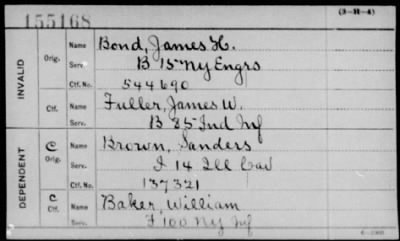 155168
(3-H-4)
INVALID
Orig.
Name Bond, James H.
Serv. B 15 Ny Engrs
Ctf. No. 544690
Ctf.
Name Fuller, James W.
Serv. B 35 Ind Inf
DEPENDENT
C
Orig.
Name Brown, Sanders
Serv. I 14 Ill Cav
Ctf. No. 137321
C
Ctf.
Name Baker, William
Serv. F 100 Ny Inf